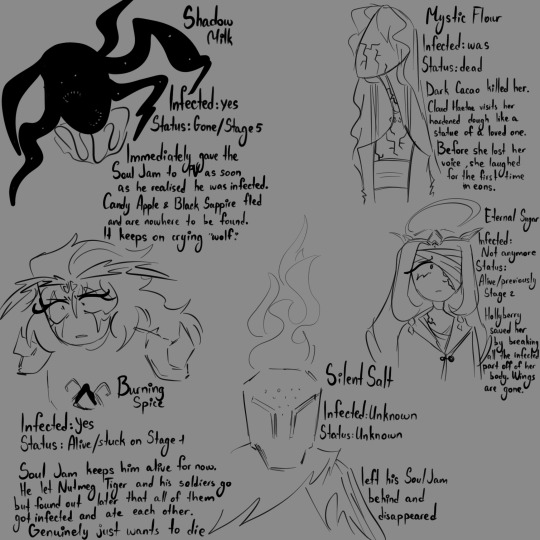 Shadow
Milk
Infected: yes
Status: Gone/Stage 5
Immediately gave the
Soul Jam to
as soon
as he realised he was infected.
Candy Apple & Black Sappire fled
and are nowhere to be found.
It keeps on crying "wolf."
Mystic Flour
Infected: was
Status: dead
Dark Cacao killed her.
Cloud Haetae visits her
hardened dough like a
statue of a loved one.
Before she lost her
voice, she laughed
for the first time
in eons.
Eternal Sugar
Infected:
Not anymore
Status:
Alive/previously
Stage 2
Hollyberry
saved her
by breaking
all the infected
part off of her
body. Wings
are gone.
Burning
Spice
Infected: Yes
Status: Alive/stuck on Stage 1
Soul Jam keeps him alive for now.
He let Nutmeg Tiger and his soldiers go
but found out later that all of them
got infected and ate each other.
Genuinely just wants to die
Silent Salt
Infected: Unknown
Status: Unknown
left his Soul Jam
behind and
disappeared